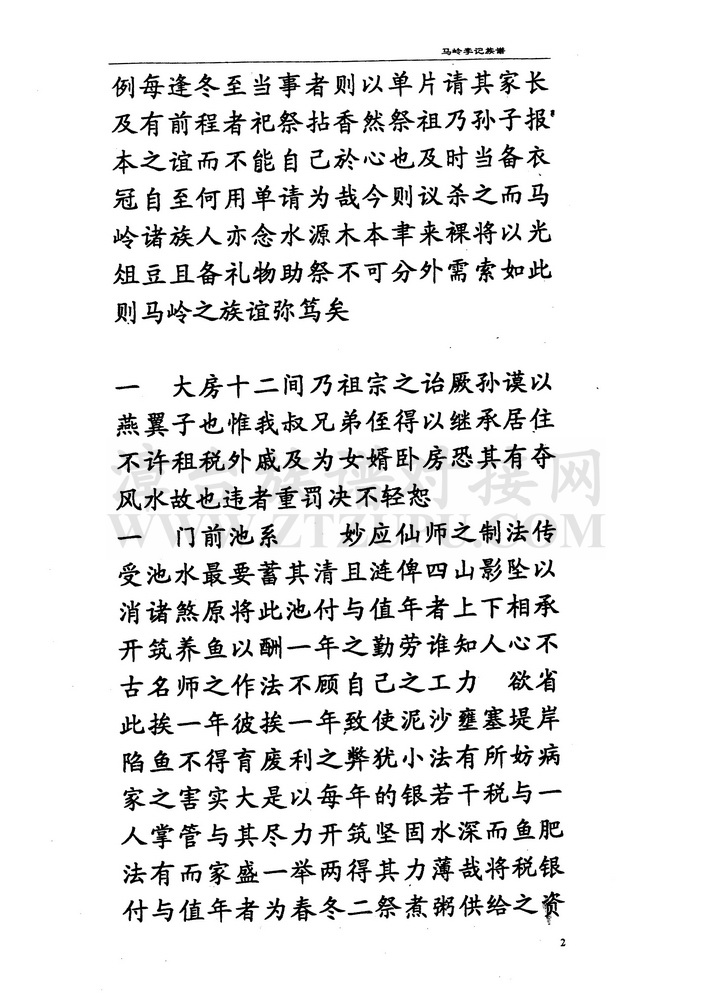 马岭李记族谱
例每逢冬至当事者则以单片请其家长
及有前程者祀祭拈香然祭祖乃孙子报
本之谊而不能自己於心也及时当备衣
冠自至何用单请为哉今则议杀之而马
岭诸族人亦念水源木本聿来裸将以光
俎豆且备礼物助祭不可分外需索如此
则马岭之族谊弥笃矣
一 大房十二间乃祖宗之诒厥孙谟以
燕翼子也惟我叔兄弟侄得以继承居住
不许租税外戚及为女婿卧房恐其有夺
风水故也违者重罚决不轻恕
一 门前池系 妙应仙师之制法传
受池水最要蓄其清且涟俾四山影坠以
消诸煞原将此池付与值年者上下相承
开筑养鱼以酬一年之勤劳谁知人心不
古名师之作法不顾自己之工力 欲省
此挨一年彼挨一年致使泥沙壅塞堤岸
陷鱼不得育废利之弊犹小法有所妨病
家之害实大是以每年的银若干税与一
人掌管与其尽力开筑坚固水深而鱼肥
法有而家盛一举两得其力薄哉将税银
付与值年者为春冬二祭煮粥供给之资
2
WWW.ZTZUPU.COM